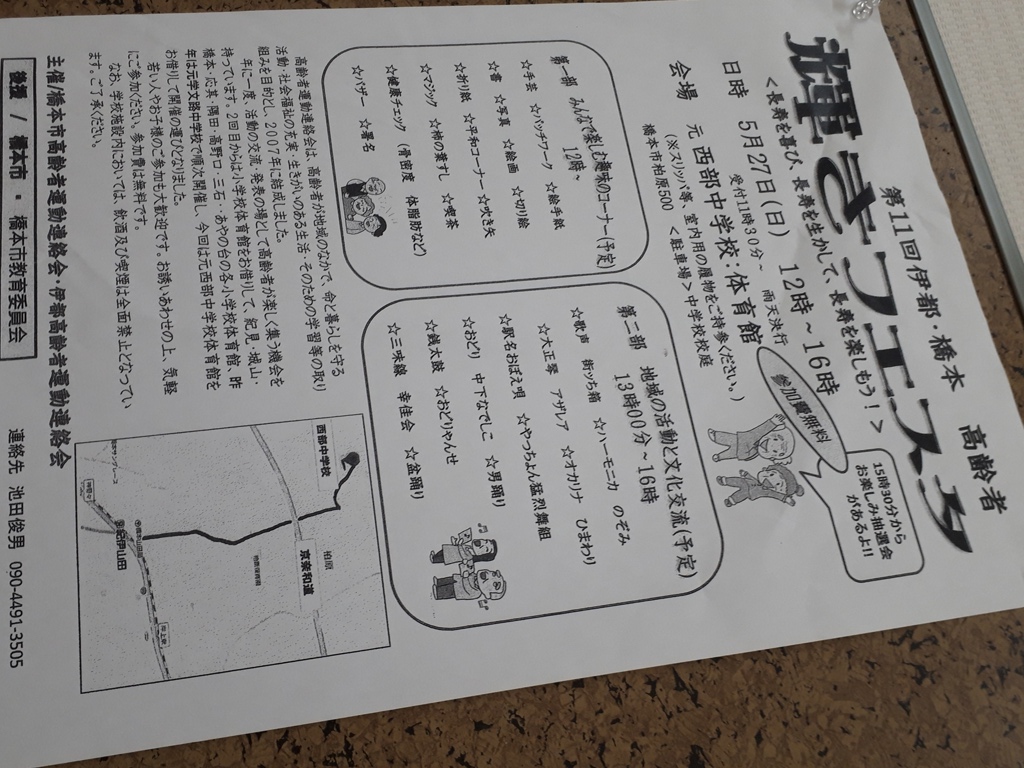 第11回伊都・橋本　高齢者
輝きフェスタ
＜長寿を喜び、長寿を生かして、長寿を楽しもう！＞
日時　5月27日（日）　12時～16時
受付11時30分～　雨天決行
会場　元 西部中学校：体育館
（※スリッパ等、室内用の履物をご持参ください。）
橋本市柏原500　＜駐車場＞中学校校庭
参加費無料
15時30分から
お楽しみ抽選会
があるよ!!
第一部　みんなで楽しむ趣味のコーナー（予定）
12時～
☆手芸　☆パッチワーク　☆絵手紙
☆書　☆写真　☆絵画　☆切り絵
☆折り紙　☆平和コーナー　☆吹き矢
☆マジック　☆柿の葉すし　☆喫茶
☆健康チェック　（骨密度　体脂肪など）
☆バザー　☆署名
第二部　地域の活動と文化交流（予定）
13時00分～16時
☆歌声　街っち箱　☆ハーモニカ　のぞみ
☆大正琴　アザレア　☆オカリナ　ひまわり
☆駅名おぼえ唄　☆やっちょん猛烈舞組
☆おどり　中下なでしこ　☆男踊り
☆銭太鼓　☆おどりゃんせ
☆三味線　幸佳会　☆盆踊り
高齢者運動連絡会は、高齢者が地域のなかで、命と暮らしを守る
活動・社会福祉の充実・生きがいのある生活・そのための学習等の取り
組みを目的とし、2007年に結成しました。
年に一度、活動の交流・発表の場として高齢者が楽しく集う機会を
持っています。2回目からは小学校体育館をお借りして、紀見・城山・
橋本・応其・隅田・高野口・三石・あやの台の各小学校体育館、昨
年は元学文路中学校で順次開催し、今回は元西部中学校体育館を
お借りして開催の運びとなりました。
若い人やお子様のご参加も大歓迎です。お誘いあわせの上、気軽
にご参加ください。参加費は無料です。
なお、学校施設内においては、飲酒及び喫煙は全面禁止となってい
ます。ご了承ください。
西部中学校
柏原
京奈和道
紀伊山田
主催/橋本市高齢者運動連絡会・伊都高齢者運動連絡会
後援 / 橋本市 ・ 橋本市教育委員会
連絡先　池田俊男　090-4491-3505